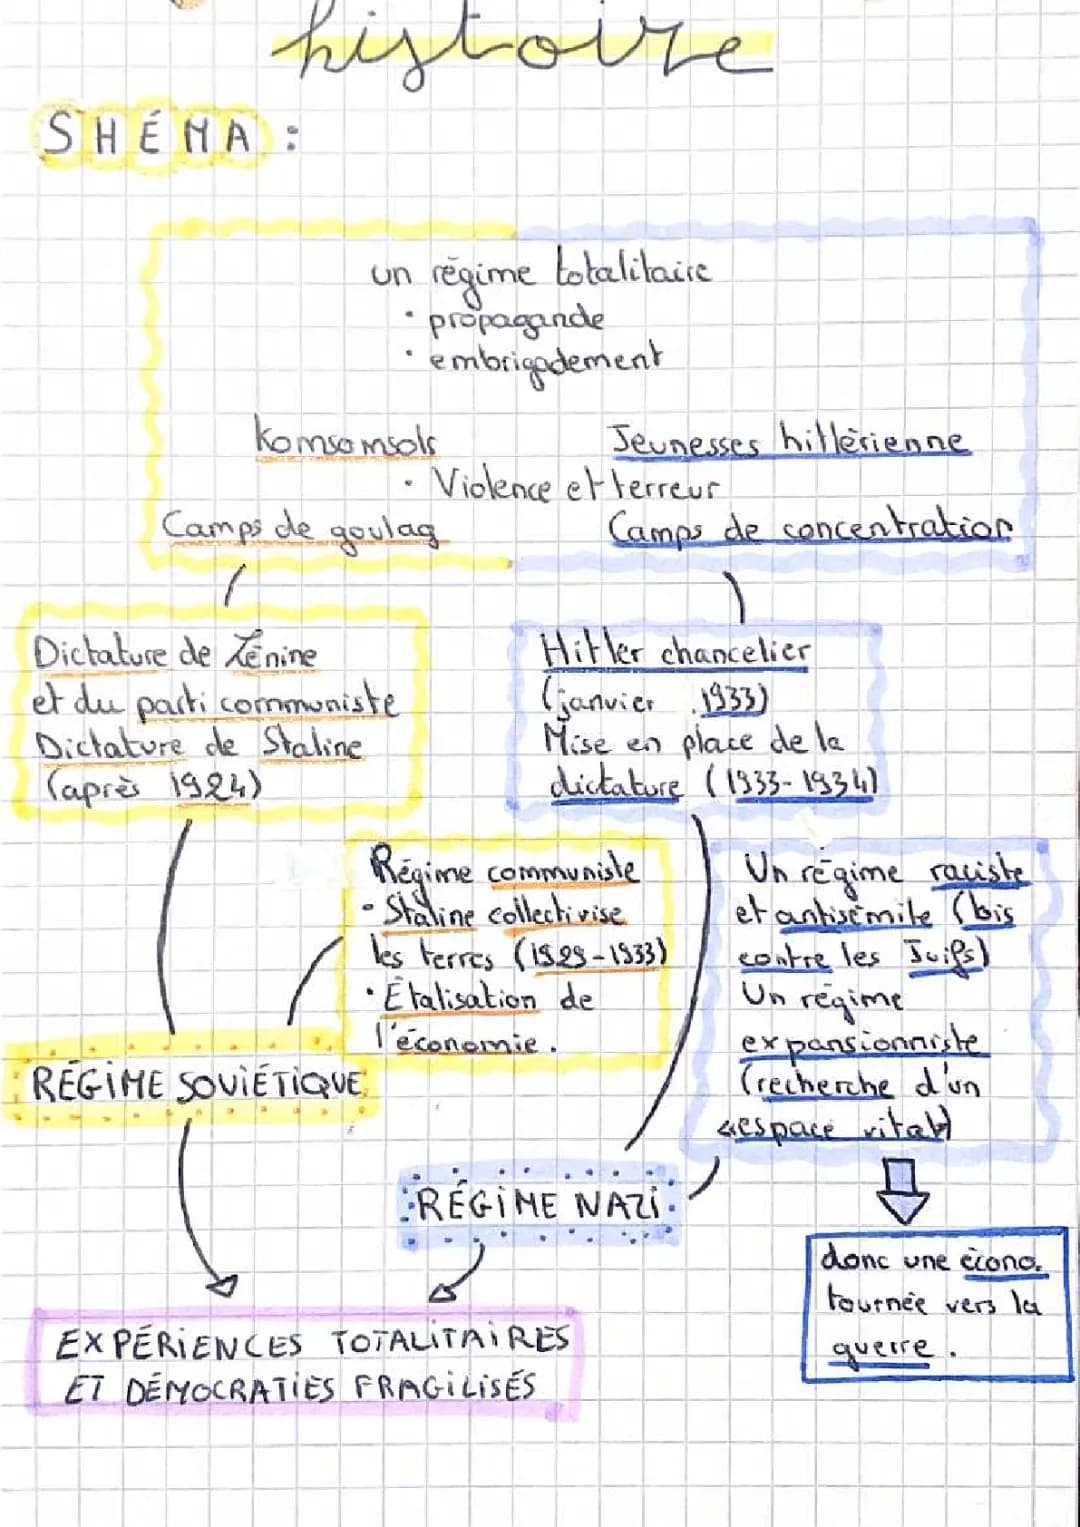 histoire
SHÉMA :
un régime totalitaire
· propagande
· embrigadement
Komsomsols
Jeunesses hitlérienne
· Violence et terreur
Camps de goulag
Camps de concentration
Dictature de Lénine
et du parti communiste
Dictature de Staline
(après 1924)
Hitler chancelier
(janvier 1933)
Mise en place de la
dictature (1933-1934)
Régime communiste
· Staline collectivise
les terres (1929-1933)
· Étatisation de
l'économie.
Un régime raciste
et antisémite (bis
contre les Juifs)
Un régime
expansionniste
(recherche d'un
"espace vital")
RÉGIME SOVIÉTIQUE
RÉGIME NAZI
donc une écono.
tournée vers la
guerre.
EXPÉRIENCES TOTALITAIRES
ET DÉMOCRATIES FRAGILISÉS